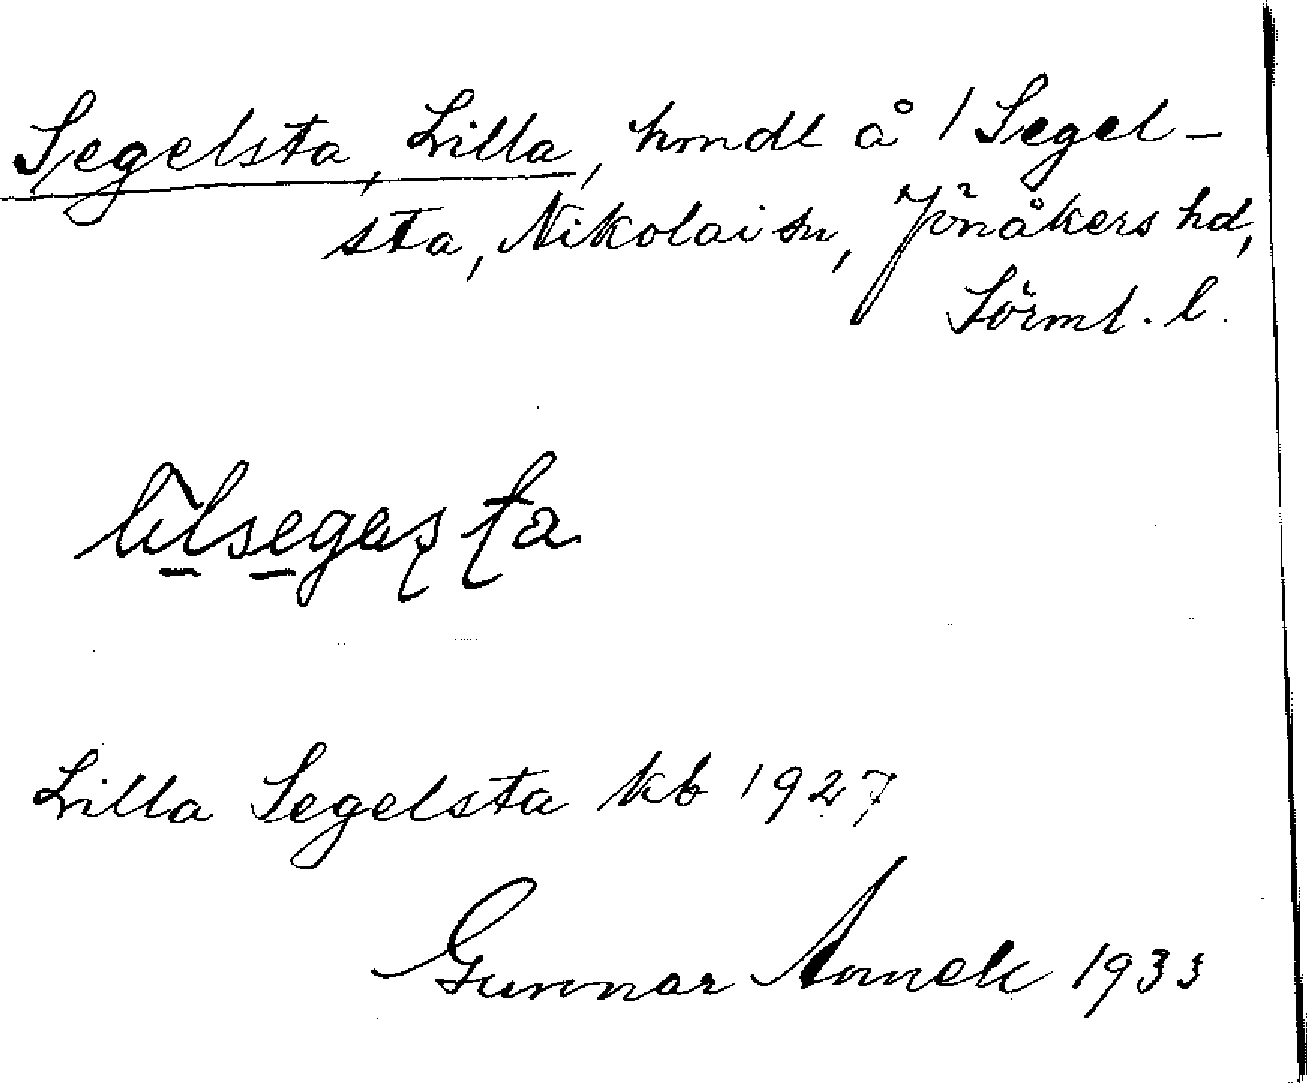 Segelsta, Lilla, hmdl å 1 Segel-
sta, Nikolai sn, Jönåkers hd,
Sörml. l.
Lilla Segelsta kb 1927
Gunnar 1933